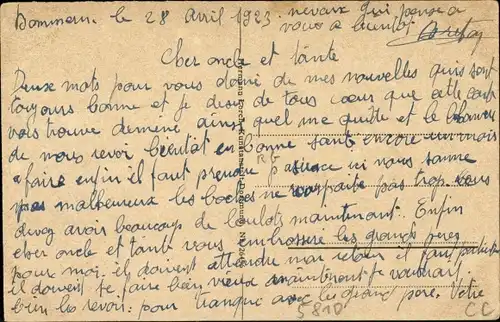 le 28 Avril 1923 neveux qui pense a
vous a bientot
Cher oncle et tante
Deux mots pour vous de mes nouvelles qui sont
toujours bonne et je desir de tous cœur que cette carte
vous trouve de même ainsi quel me quitte et le bonheur
de nous revoir bientot en bonne santé encore un mois
a faire enfin il faut prendre patience ici nous somme
pas malheureux les boches ne pas trop vous
devez avoir beaucoup de boulots maintenant. Enfin
cher oncle et tante vous les grands peres
pour moi il doivent attendre mon retour il
il doivent se faire bien vieux maintenant je voudrait
bien les revoir pour avec les grand pere. Votre
Hermann Lorch Kunstanstalt Dortmund
5810
CC